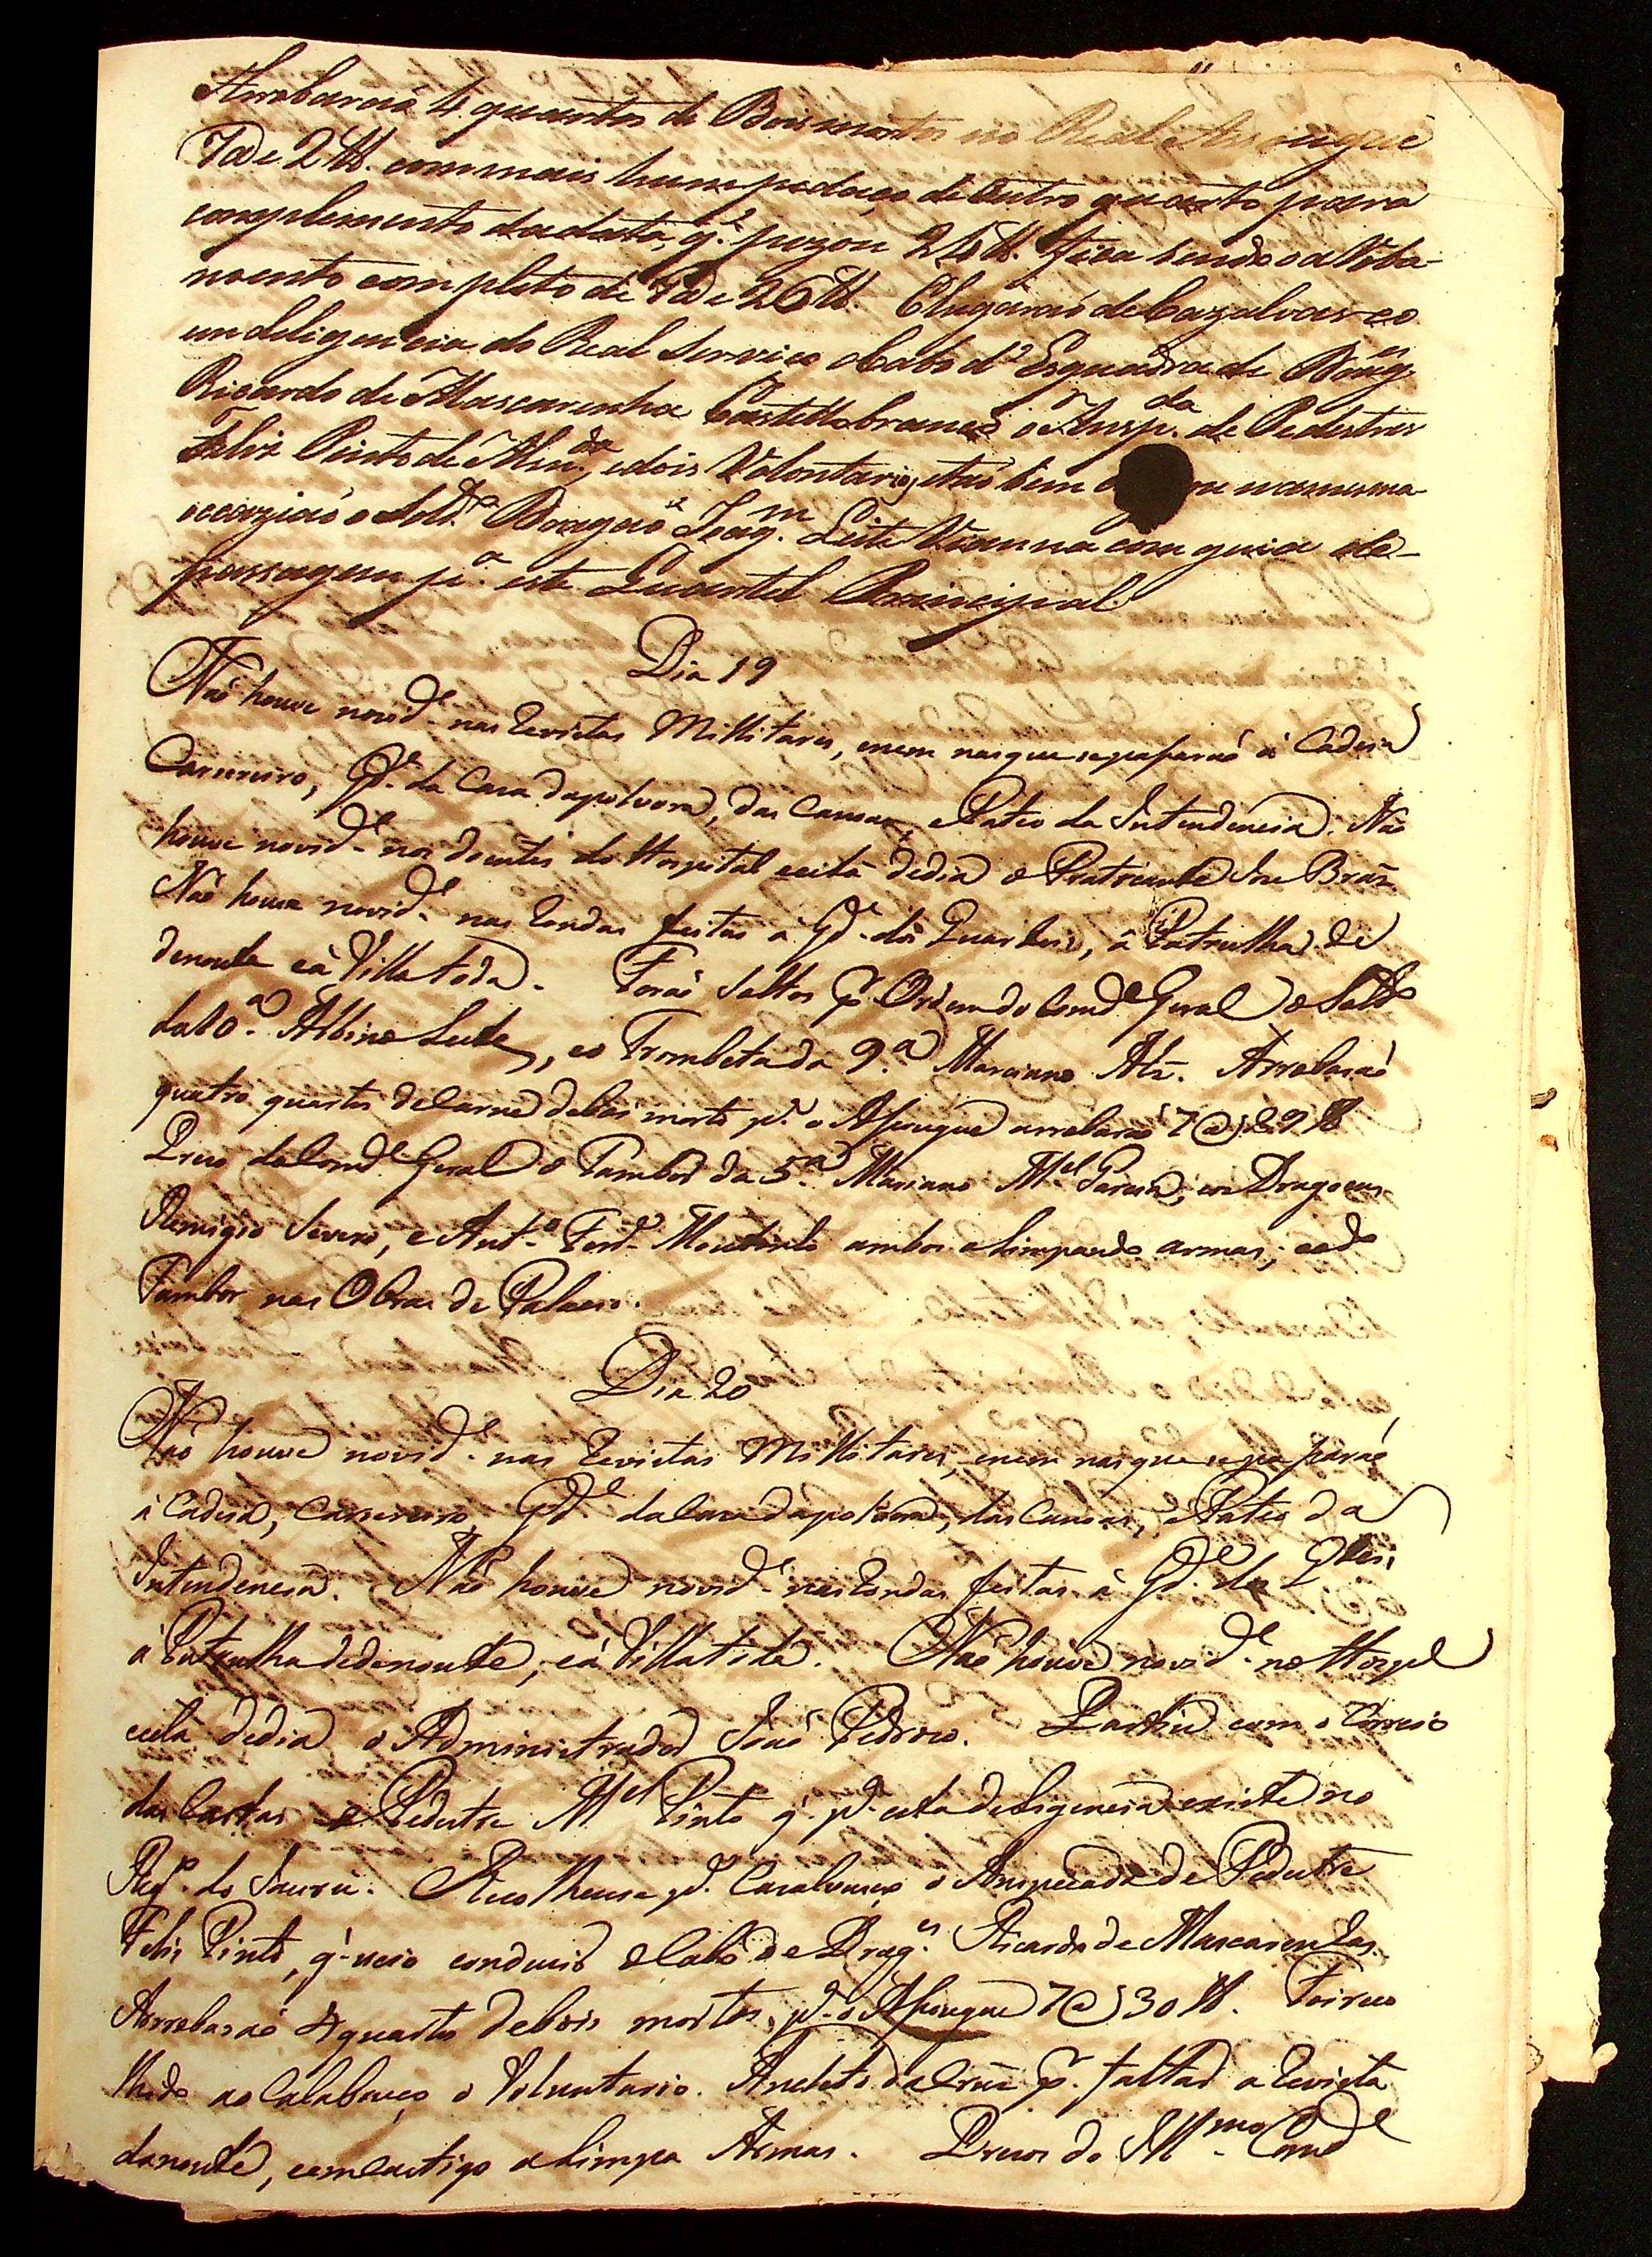 Arrobaraõ 4 quartos de Bois mortos no Real Assougue
7@ e 2 ℔. com mais hum pedaço de outro quarto para
complemento da data, q.' pezou 24 ℔. fica sendo o a Roba-
mento completo de 7@ e 26 ℔. Chegáraõ de Cazalvasco
em deligencia do Real Serviço o Cabo d'Esquadra de Drag.es
Ricardo de Mascarenhas Castello branco o Ansp.da de Pedestres
Feliz Pinto de Mir.da, e dois Voluntarios, e taõ bem na mesma
occaziaõ o Sold.o Dragaõ Joaq.m Leite Vianna com guia de
passagem p.a este Quartel Principal.
Dia 19
Naõ houve novid.e nas Revistas Millitares, e nem nas que se passaraõ á Cadeia
Carneiro, G.de da Casa da polvora, das Canoas, e Pateo da Intendencia. Naõ
houve novid.e nos doentes do Hospital está de dia o Praticante Joze Braz
Naõ houve novid.e nas Rondas feitas á G.de dos Quarteis, á Patrulha de
de noute e á Villa toda. Foraõ Soltos p.r Ordem do Com.de Geral o Sold.o
da 10.a Albino Leite, e o Trombeta da 9.a Marciano Alz. Arrobaraõ
quatro quartos de Carne de bois mortos p.a o Assougue arrobaraõ 7@ e 29 ℔
Prezo do Com.de Geral o Tambor da 5.a Mariano M.el Garcia, e os Dragoens
Remigio Severo, e Ant.o Ferd.o Monteiro ambos a limpando armas; e o d.o
Tambor nas Obras de Palacio.
Dia 20
Naõ houve novid.e nas Revistas Millitares, e nem nas que se passaraõ
á Cadeia, Carneiro G.de da Casa da polvora, das Canoas, e Pateo da
Intendencia. Naõ houve novid.e nas Rondas feitas á G.de dos Q.teis,
á Patrulha de de noute, e á Villa toda. Naõ houve novid.e no Hosp.el
está de dia o Administrador Joaõ Pedrozo. Partiu com o Correio
das Cartas o Pedestre M.el Pinto q.' p.a esta deligencia existe no
Reg.o do Jaurú. Recolheuse p.a Casalvasco o Anspeçada de Pedestre
Felis Pinto, q.' veio conduzir o Cabo de Drag.es Ricardo de Mascarenhas.
Arrobaraõ 4 quartos de bois mortos p.a o Assougue 7@ 30 ℔. Foi reco
lhido ao Calabouço o Voluntario Anacleto da Cruz p.r faltar a Revista
da noute, com castigo a limpa Armas. Prezos do Ill.mo Com.de